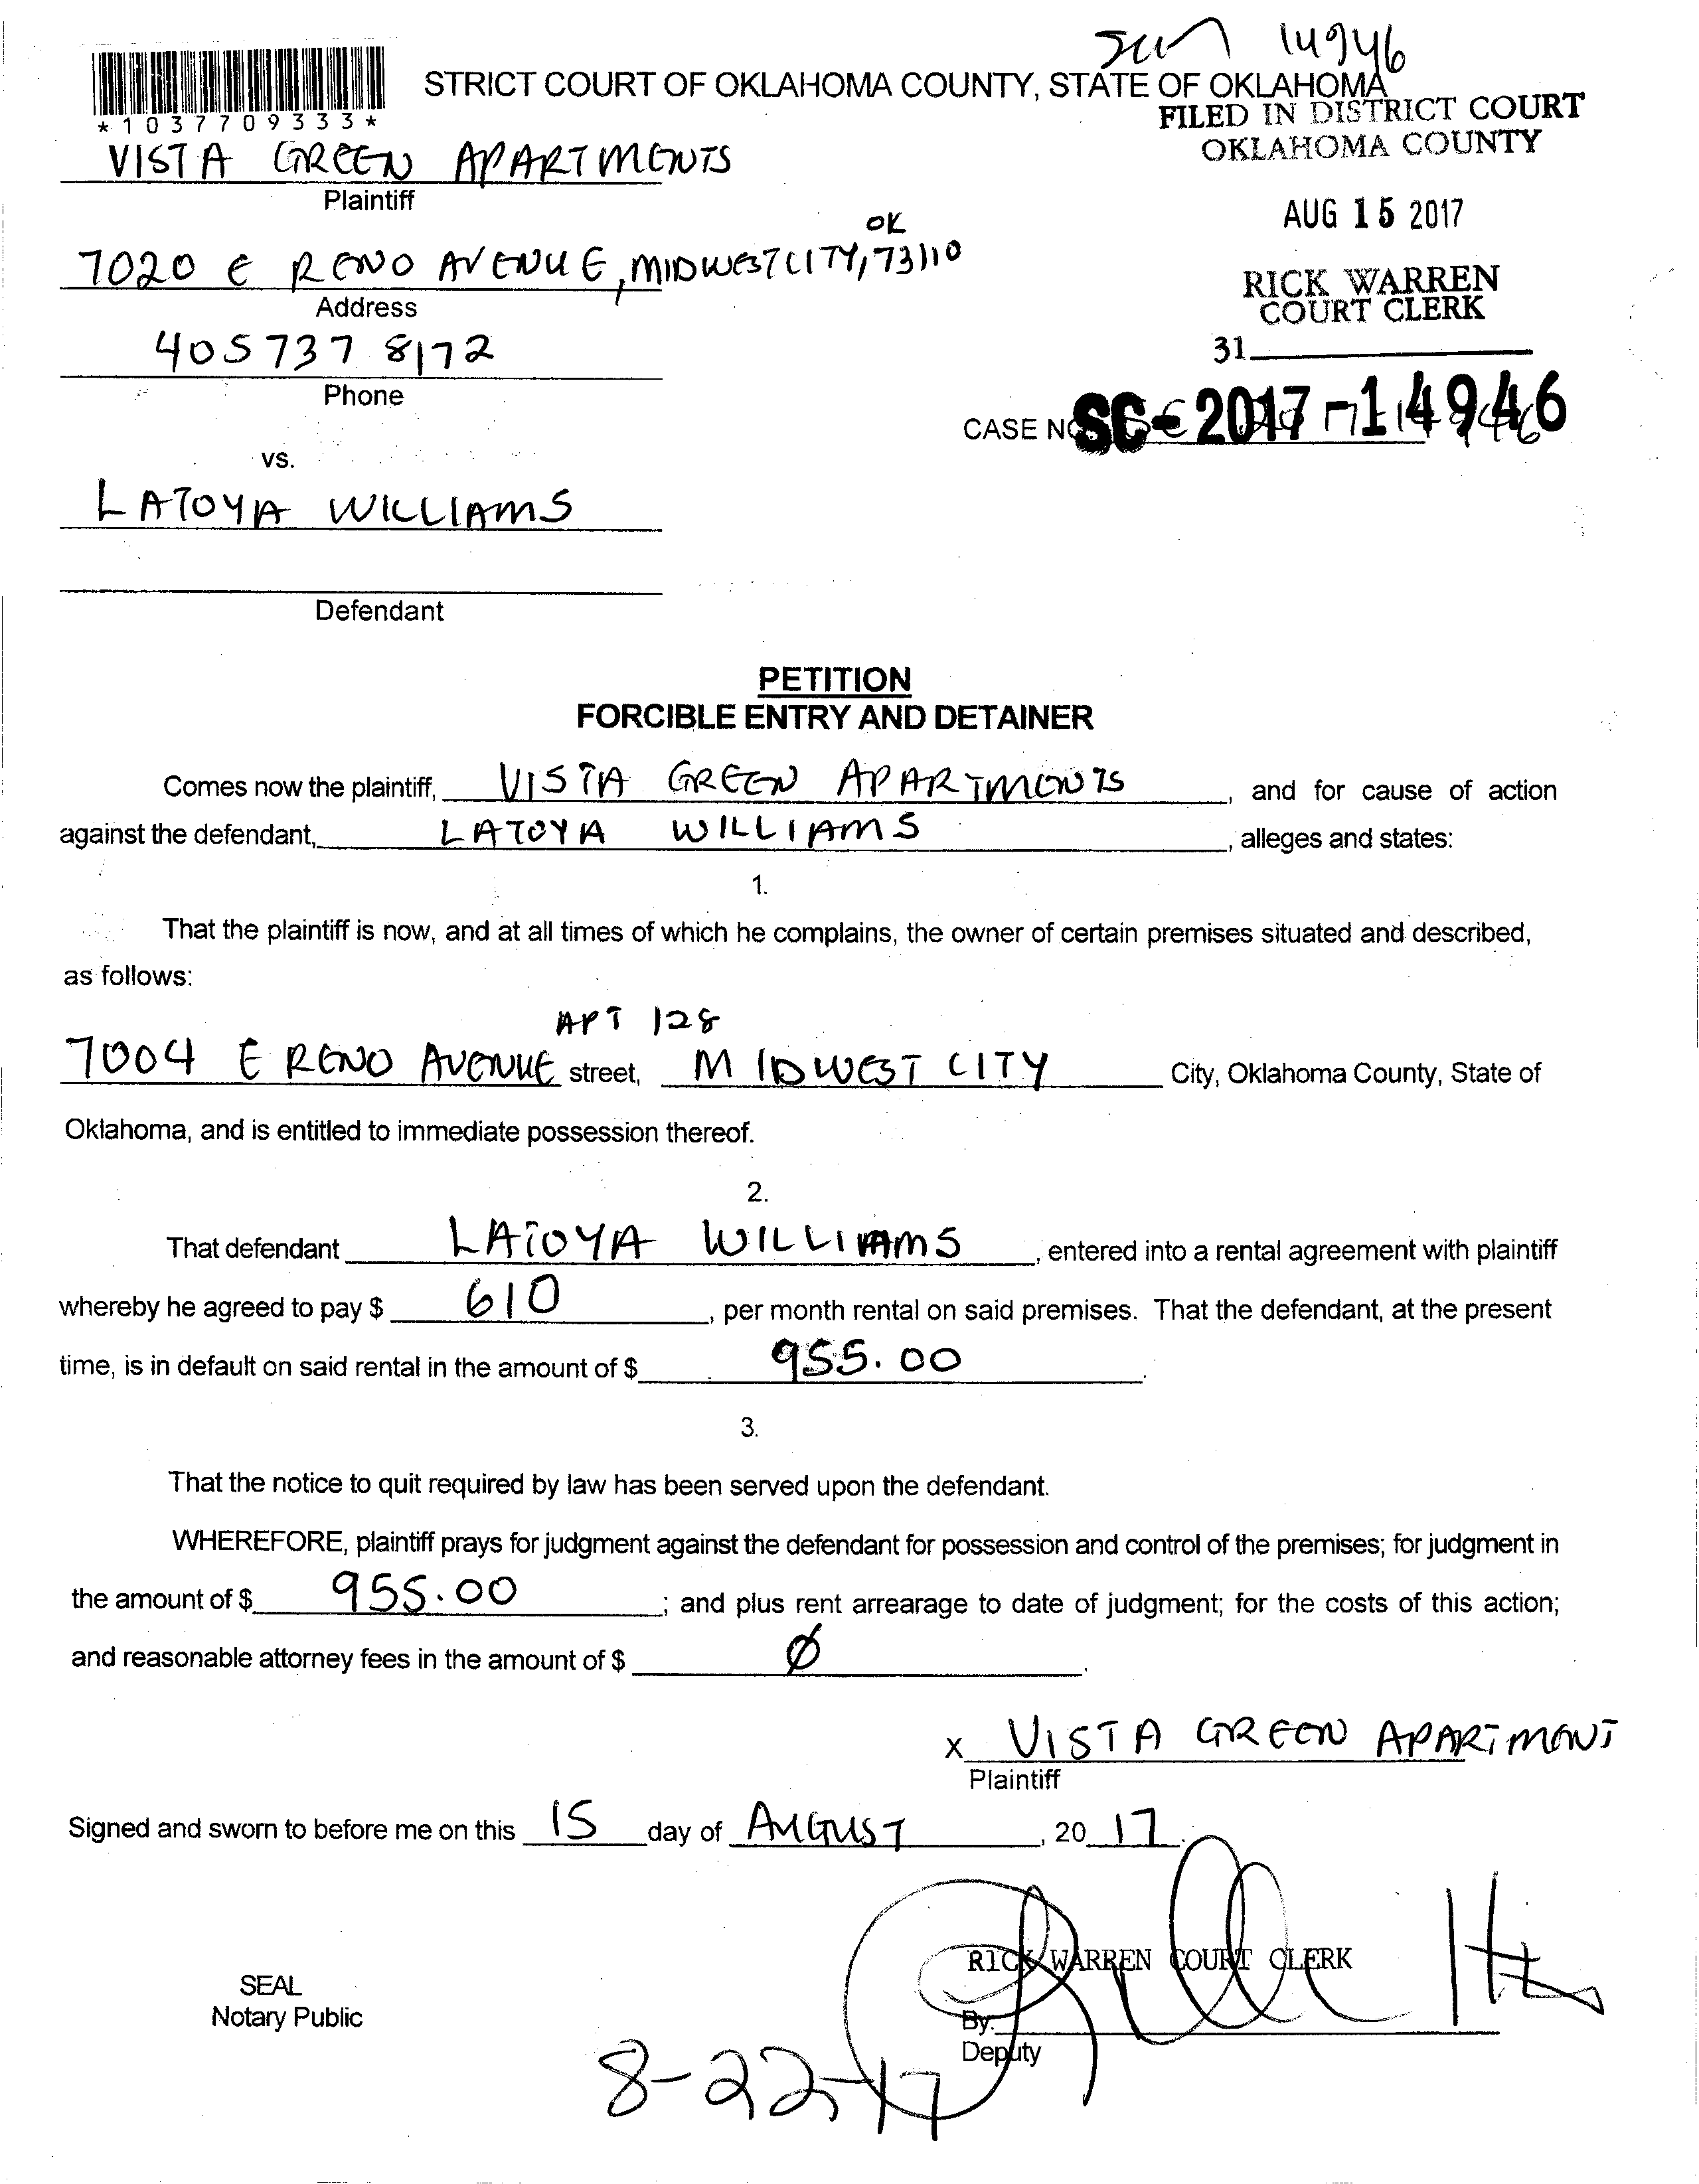 14946
STRICT COURT OF OKLAHOMA COUNTY, STATE OF OKLAHOMA
*1037709333*
FILED IN DISTRICT COURT
OKLAHOMA COUNTY
VISTA GREEN APARTMENTS
Plaintiff
AUG 15 2017
OK
7020 E RENO AVENUE, MIDWEST CITY, 73110
Address
RICK WARREN
COURT CLERK
405 737 8172
31
Phone
CASE NO SC-2017-14946
vs.
LATOYA WILLIAMS
Defendant
PETITION
FORCIBLE ENTRY AND DETAINER
Comes now the plaintiff, VISTA GREEN APARTMENTS, and for cause of action
against the defendant, LATOYA WILLIAMS, alleges and states:
1.
That the plaintiff is now, and at all times of which he complains, the owner of certain premises situated and described,
as follows:
APT 128
7004 E RENO AVENUE street, MIDWEST CITY City, Oklahoma County, State of
Oklahoma, and is entitled to immediate possession thereof.
2.
That defendant LATOYA WILLIAMS, entered into a rental agreement with plaintiff
whereby he agreed to pay $ 610, per month rental on said premises. That the defendant, at the present
time, is in default on said rental in the amount of $ 955.00.
3.
That the notice to quit required by law has been served upon the defendant.
WHEREFORE, plaintiff prays for judgment against the defendant for possession and control of the premises; for judgment in
the amount of $ 955.00; and plus rent arrearage to date of judgment; for the costs of this action;
and reasonable attorney fees in the amount of $ Ø.
X VISTA GREEN APARTMENT
Plaintiff
Signed and sworn to before me on this 15 day of AUGUST, 20 17.
RICK WARREN COURT CLERK
SEAL
Notary Public
By:
Deputy
8-22-17